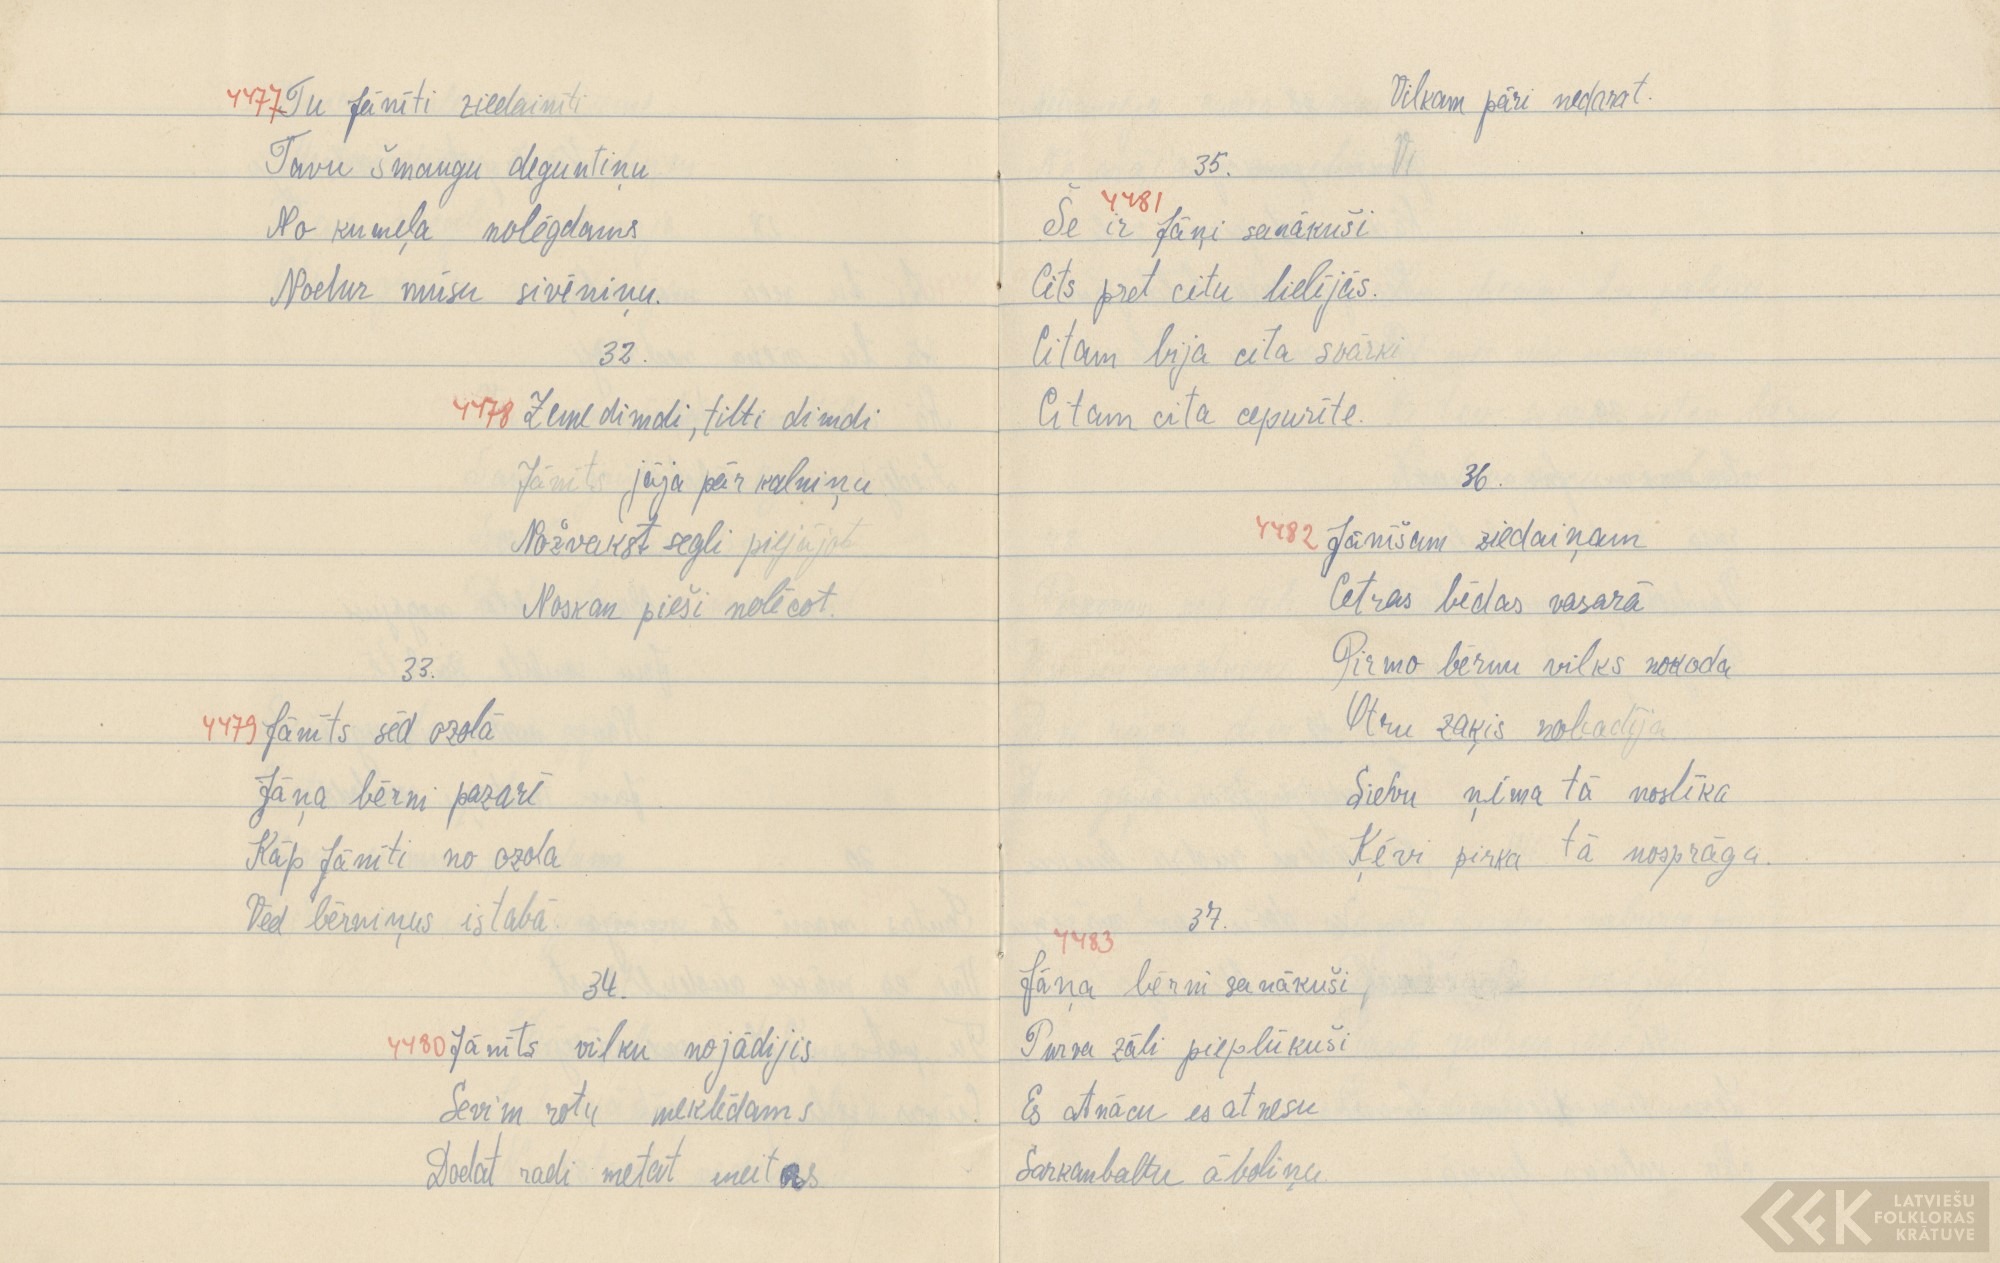 4477 Tu Jānīti ziedainīti
Tavu šmaugu deguntiņu
No kumeļa nolēgdams
Nodur mūsu sivēniņu.
32.
4478 Zeme dimdi, tilti dimdi
Jānīts jāja pār kalniņu
Nožvakst segli piejājot
Noskan pieši nolēcot.
33.
4479 Jānīts sēd ozolā
Jāņa bērni pazarē
Kāp Jānīti no ozola
Ved bērniņus istabā.
34.
4480 Jānīts vilku nojādijis
Sevim rotu meklēdams
Dodat radi metat meitas
Vilkam pāri nedarat.
35.
4481
Še ir Jāņi sanākuši
Cits pret citu lielījās.
Citam bija cita svārki
Citam cita cepurīte.
36.
4482 Jānīšam ziedaiņam
Cetras bēdas vasarā
Pirmo bērnu vilks nokoda
Otru zaķis nobadīja
Sievu ņima tā noslīka
Ķēvi pirka tā nosprāga.
37.
4483
Jāņa bērni sanākuši,
Purva zāli pieplūkuši
Es atnācu es atnesu
Sarkanbaltu āboliņu
LATVIEŠU
FOLKLORAS
KRĀTUVE